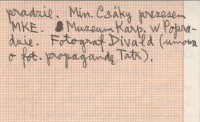 pradzie. Min. Csáky prezesem
MKE. Muzeum Karp. w Popra-
dzie. Fotograf Divald (umowa
o fot. propagandę Tatr).